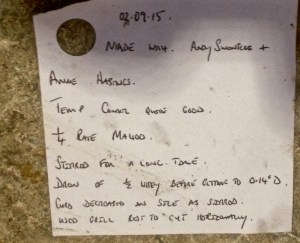 02-09-15.
MADE WITH. ANDY +
ANNE HASTINGS.
TEMP CONTROL QUITE GOOD.
1/4 RATE M4000.
STIRRED FOR A LONG TIME.
DRAW OF 1/2 WHEY BEFORE GETTING TO 0.14°D.
CURD DECREASED IN SIZE AS STIRRED.
USED GRILL ROST TO "CUT HORIZONTALLY.